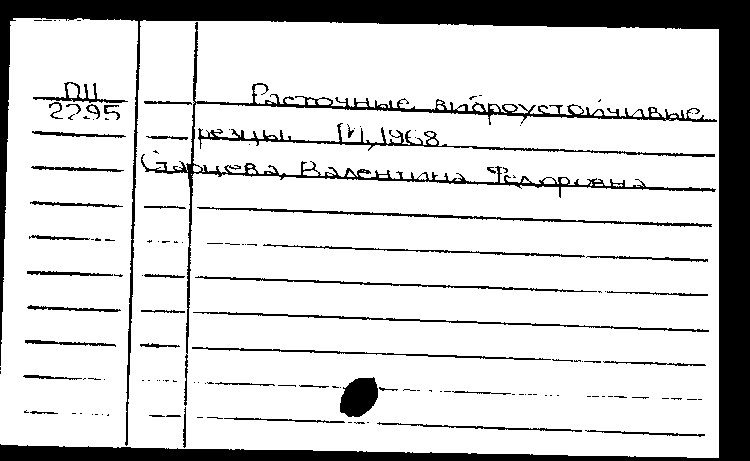 ПII
2295
Расточные виброустойчивые
резцы. М, 1968.
Старцева, Валентина Федоровна